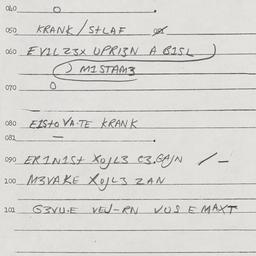 040 O
050 KRANK / STLAF
060 EVILZ3X UPRI3N A BISL
MISTAM3
070 O
080 EISTOVATE KRANK
081 —
090 ERINIST XOJL3 C3.GAJN / —
100 M3VAKE XOJL3 ZAN
101 G3VU.E VEJ-RN VUS E MAXT